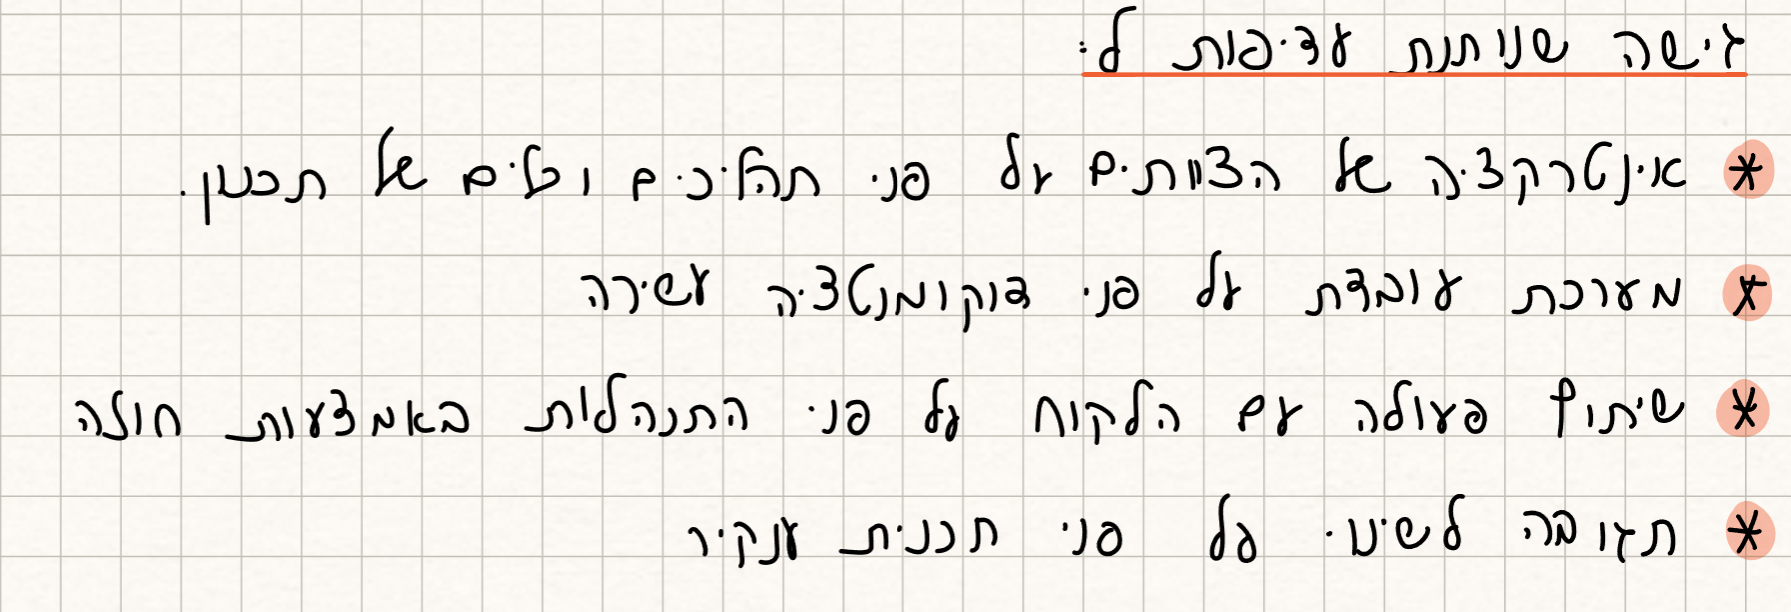 גישה שנותנת עדיפות ל:
* אינטרקציה של הצוותים על פני תהליכים וכלים של תכנון.
* מערכת עובדת על פני דוקומנטציה עשירה
* שיתוף פעולה עם הלקוח על פני התנהלות באמצעות חוזה
* תגובה לשינוי על פני תכנית